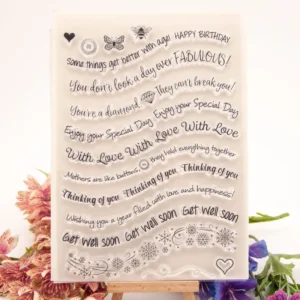 Some things get better with age! HAPPY BIRTHDAY
You don't look a day over FABULOUS!
You're a diamond They can't break you!
Enjoy your Special Day Enjoy your Special Day
With Love With Love With Love
Mothers are like buttons they hold everything together
Thinking of you Thinking of you Thinking of you
Wishing you a year filled with love and happiness!
Get well soon Get well soon Get well soon